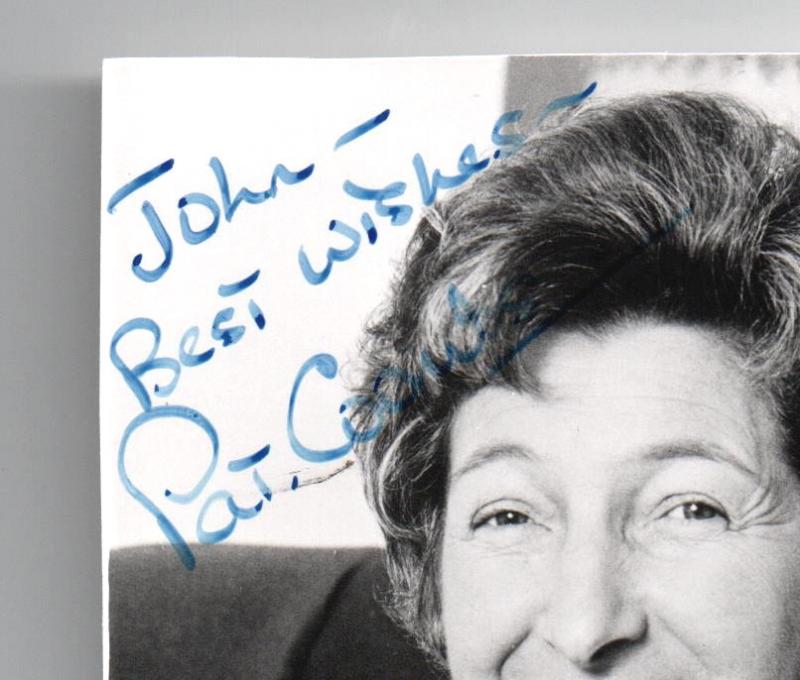 John –
Best wishes –
Pat. Coombs